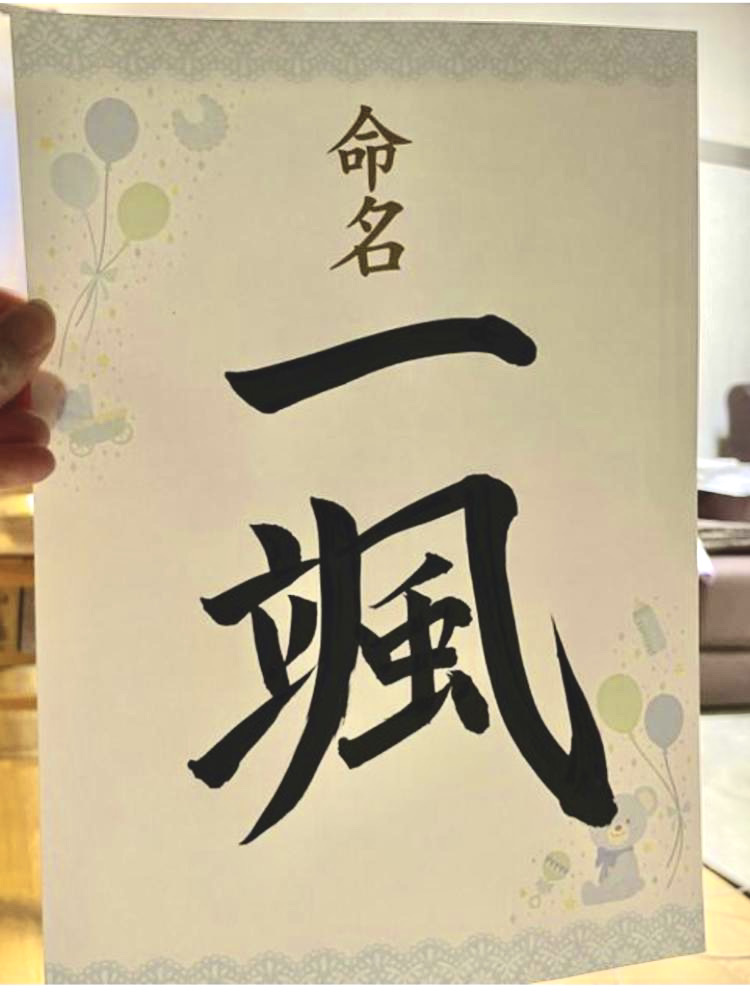 命名
一颯